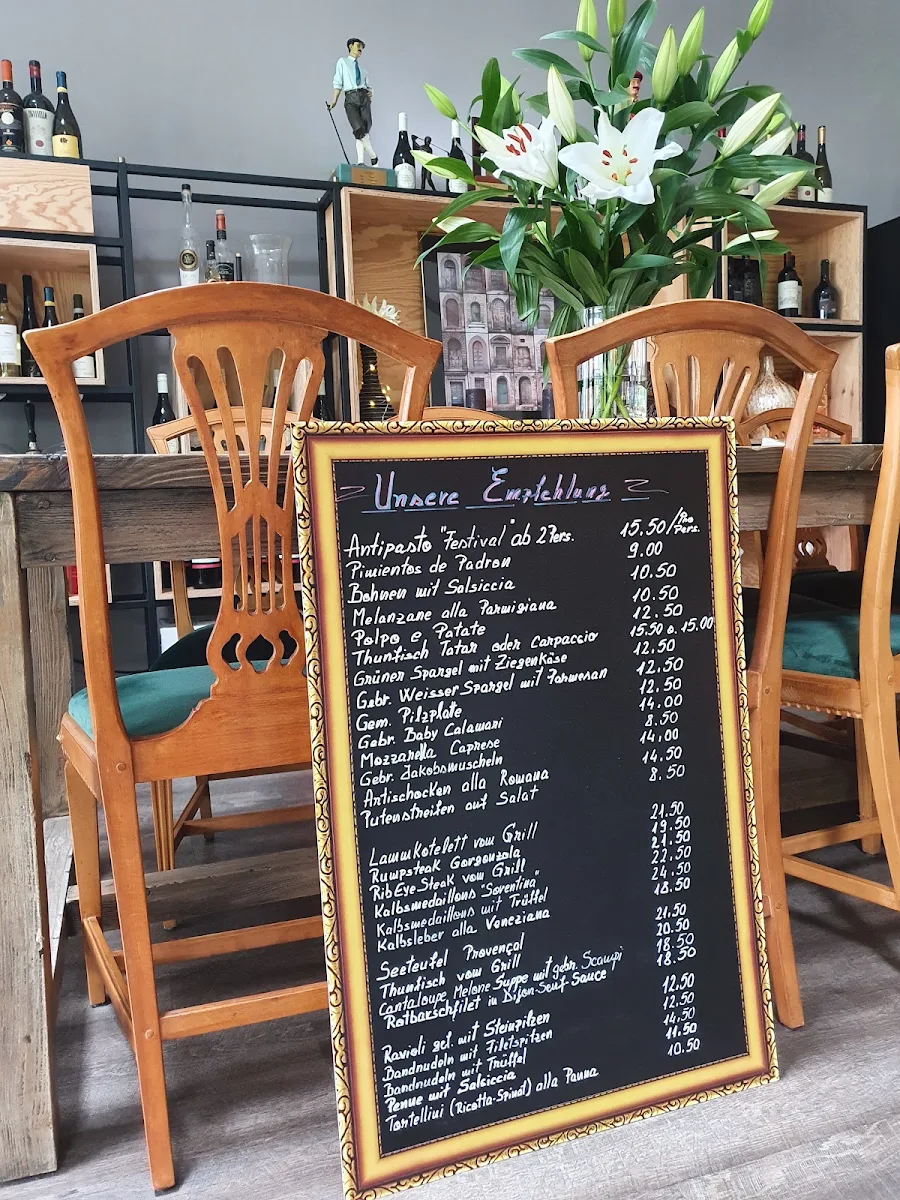 Unsere Empfehlung
Antipasto "Festival" ab 2 Pers. 15.50/Pro Pers.
Pimientos de Padron 9.00
Bohnen mit Salsiccia 10.50
Melanzane alla Parmigiana 10.50
Polpo e Patate 12.50
Thunfisch Tatar oder Carpaccio 15.50 o. 15.00
Grüner Spargel mit Ziegenkäse 12.50
Gebr. Weisser Spargel mit Parmesan 12.50
Gem. Pilzplate 12.50
Gebr. Baby Calamari 14.00
Mozzarella Caprese 8.50
Gebr. Jakobsmuscheln 14.00
Artischocken alla Romana 14.50
Putenstreifen auf Salat 8.50
Lammkotelett vom Grill 21.50
Rumpsteak Gorgonzola 19.50
RibEye-Steak vom Grill 21.50
Kalbsmedaillons "Sorentina" 22.50
Kalbsmedaillons mit Trüffel 24.50
Kalbsleber alla Veneziana 18.50
Seeteufel Provençal 21.50
Thunfisch vom Grill 20.50
Cantaloupe Melone Suppe mit gebr. Scampi 18.50
Rotbarschfilet in Dijon-Senf Sauce 18.50
Ravioli gef. mit Steinpilzen 12.50
Bandnudeln mit Filetspitzen 12.50
Bandnudeln mit Trüffel 14.50
Penne mit Salsiccia 11.50
Tortellini (Ricotta-Spinat) alla Panna 10.50